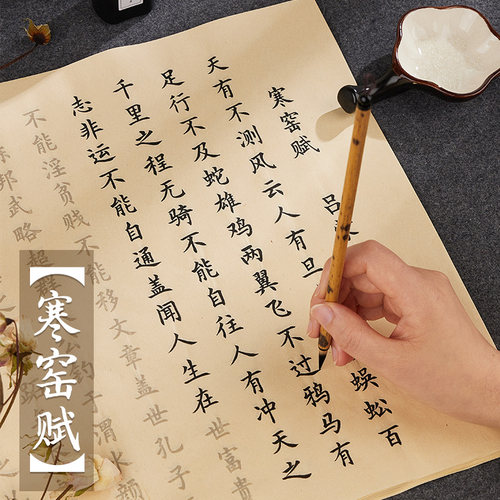 寒窑赋 吕
天有不测风云人有旦 蜈蚣百
足行不及蛇雄鸡两翼飞不过鸦马有
千里之程无骑不能自往人有冲天之
志非运不能自通盖闻人生在世富贵
不能淫贫贱不能移文章盖世孔子
邦武略超 钓于渭水颜
【寒窑赋】